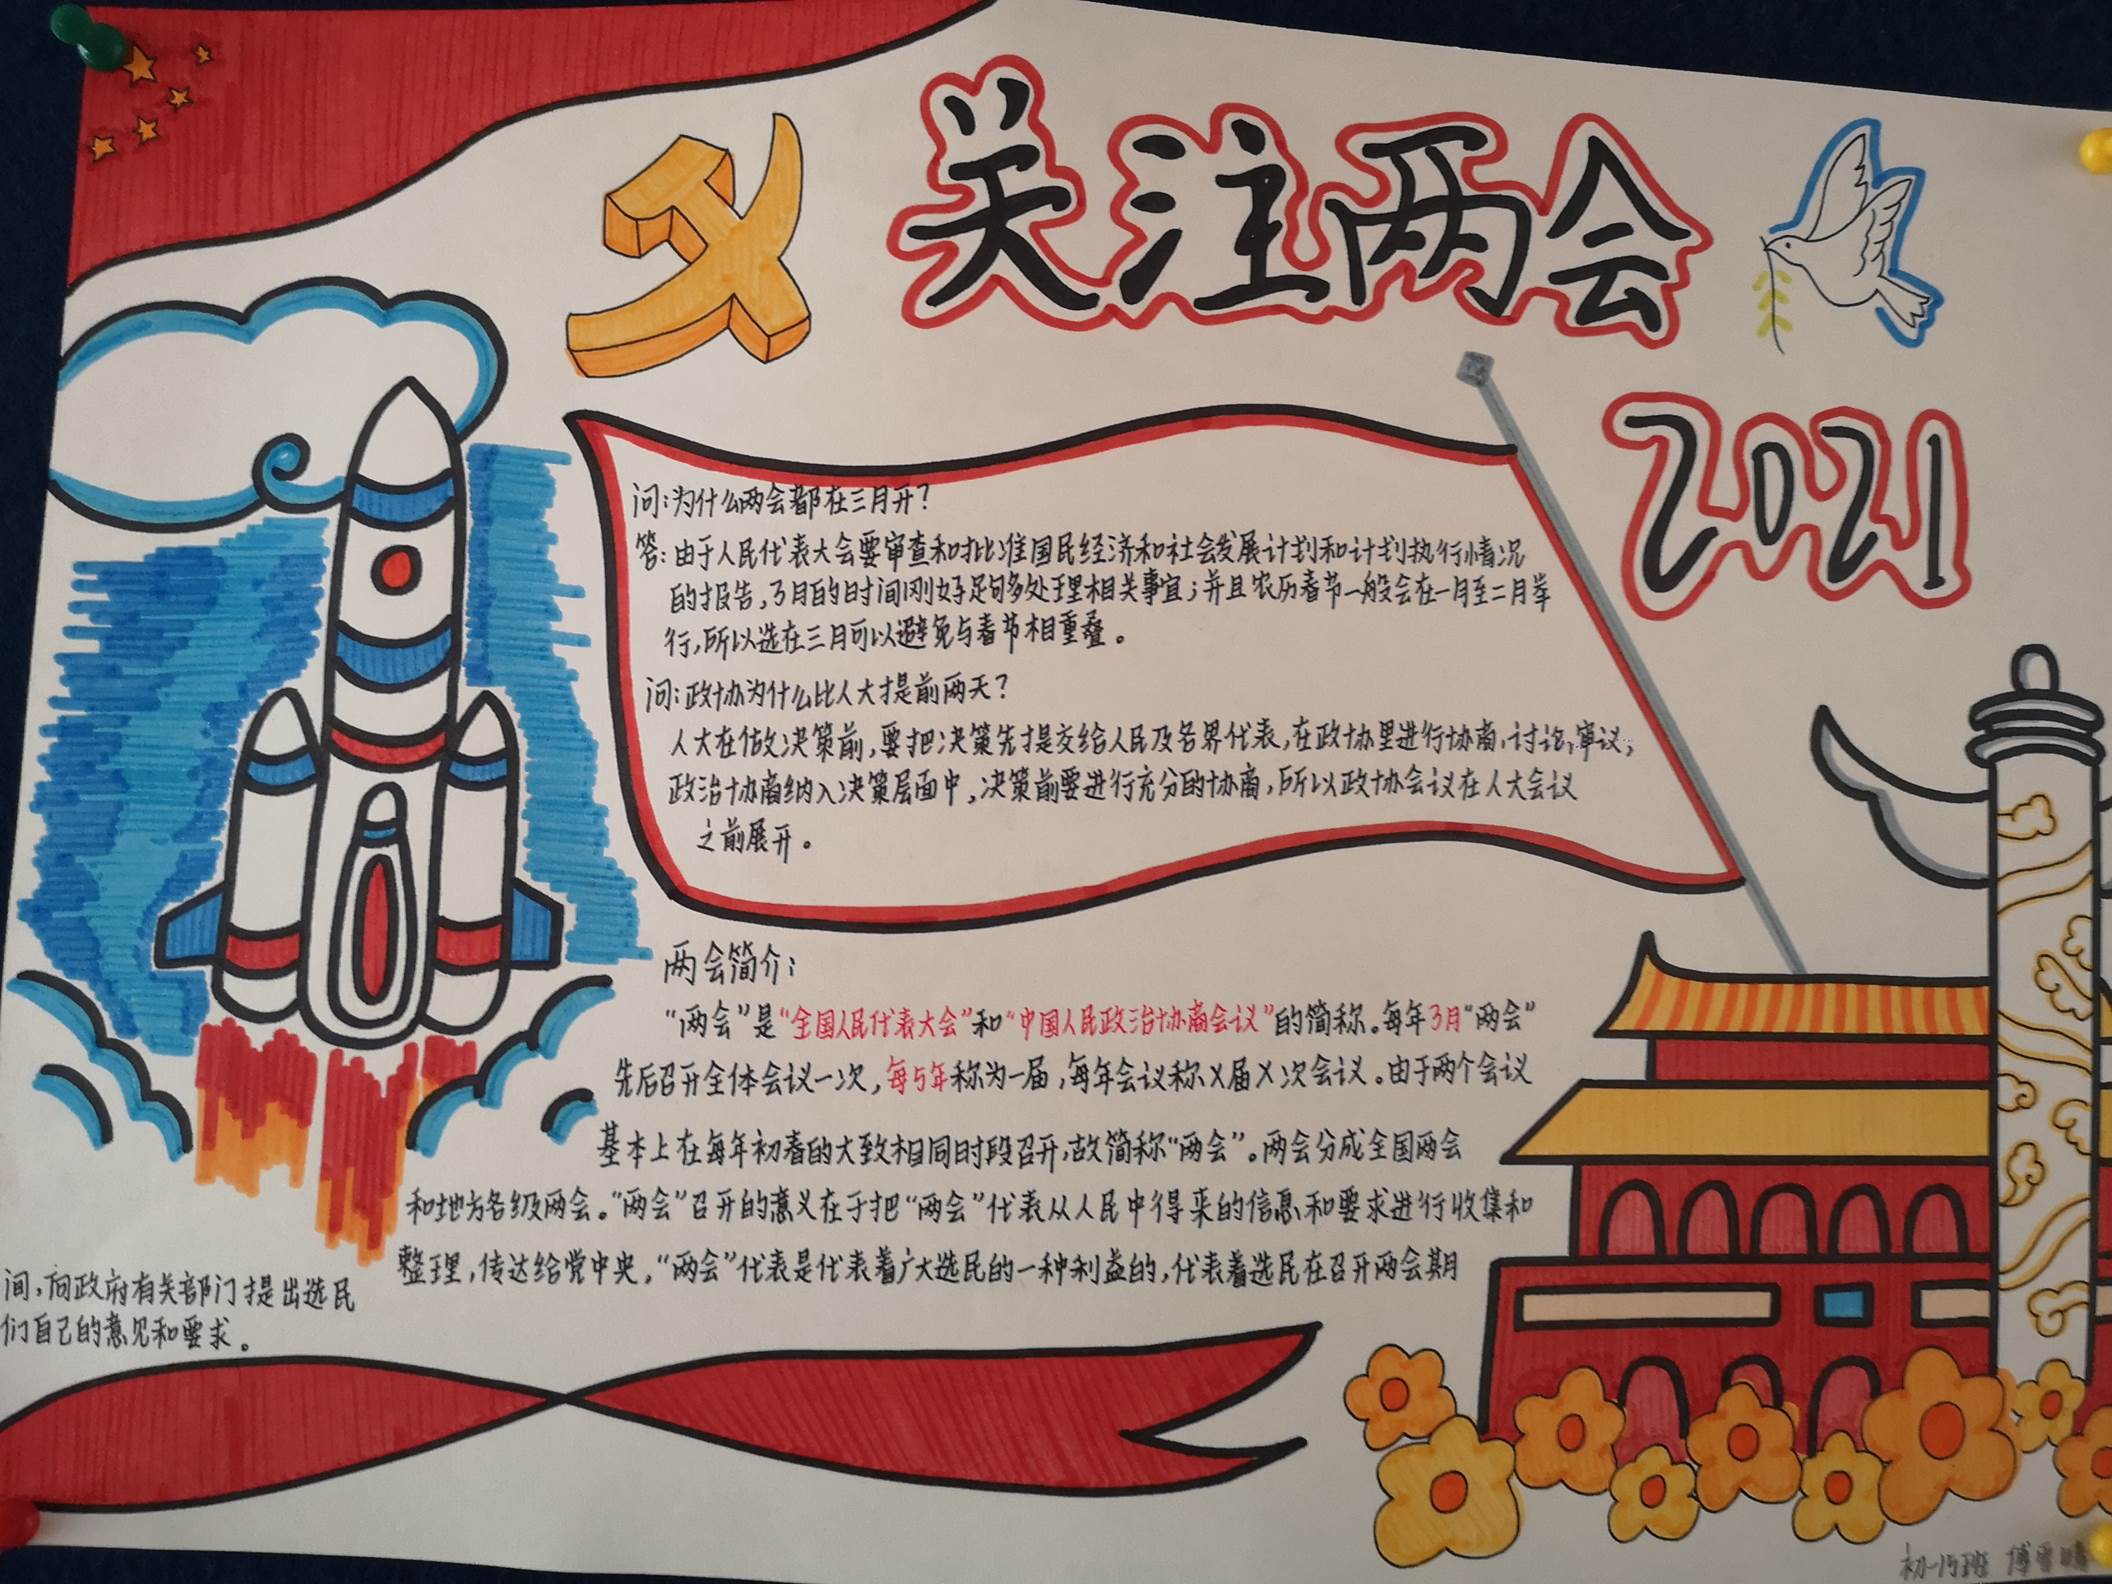 关注两会
2021
问:为什么两会都在三月开?
答:由于人民代表大会要审查和批准国民经济和社会发展计划和计划执行情况
的报告,3月的时间刚好足够多处理相关事宜;并且农历春节一般会在一月至二月举
行,所以选在三月可以避免与春节相重叠。
问:政协为什么比人大提前两天?
人大在做决策前,要把决策先提交给人民及各界代表,在政协里进行协商,讨论,审议,
政治协商纳入决策层面中,决策前要进行充分的协商,所以政协会议在人大会议
之前展开。
两会简介:
“两会”是“全国人民代表大会”和“中国人民政治协商会议”的简称。每年3月“两会”
先后召开全体会议一次,每5年称为一届,每年会议称X届X次会议。由于两个会议
基本上在每年初春的大致相同时段召开,故简称“两会”。两会分成全国两会
和地方各级两会。“两会”召开的意义在于把“两会”代表从人民中得来的信息和要求进行收集和
整理,传达给党中央。“两会”代表是代表着广大选民的一种利益的,代表着选民在召开两会期
间,向政府有关部门提出选民
们自己的意见和要求。